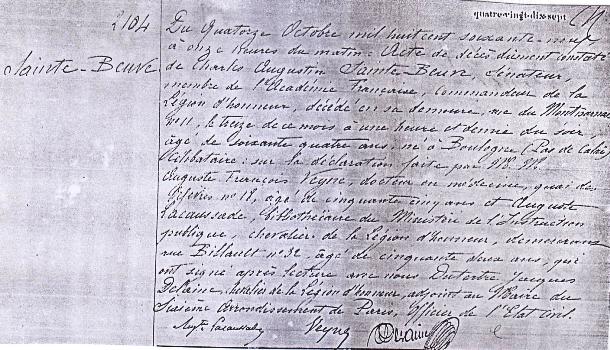 quatre-vingt-dix-sept
2184
Sainte-Beuve
Du quatorze Octobre mil huit cent soixante-neuf
à onze heures du matin. Acte de décès dûment constaté
de Charles Augustin Sainte-Beuve, Sénateur,
membre de l'Académie française, commandeur de la
Légion d'honneur, décédé en sa demeure, rue du Montparnasse
n° 11, le treize de ce mois à une heure et demie du soir,
âgé de soixante quatre ans, né à Boulogne (Pas de Calais)
célibataire : sur la déclaration faite par MM.
Auguste François Veyne, docteur en médecine, quai des
Orfèvres n° 18, âgé de cinquante cinq ans et Auguste
Lacaussade, bibliothécaire du Ministère de l'Instruction
publique, chevalier de la Légion d'honneur, demeurant
rue Billault n° 32, âgé de cinquante deux ans, qui
ont signé après lecture avec nous Jacques
chevalier de la Légion d'honneur, adjoint au Maire du
Sixième Arrondissement de Paris, Officier de l'Etat Civil.
Augte Lacaussade Veyne